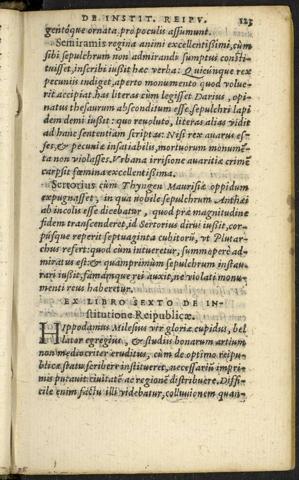 DE INSTIT. REIPV. 123
gentóque ornata pro poculis assumunt.
Semiramis regina animi excellentissimi, cùm
sibi sepulchrum non admirandi sumptus consti-
tuisset, inscribi iussit hæc verba: Quicunque rex
pecuniis indiget, aperto monumento quod volue-
rit accipiat. has literas cùm legisset Darius, opi-
natus thesaurum absconditum esse, sepulchri lapi
dem demi iussit: quo reuoluto, literas alias vidit
ad hanc sententiam scriptas: Nisi rex auarus es-
ses, & pecuniæ insatiabilis, mortuorum monumē-
ta non violasses. Vrbana irrisione auaritiæ crimē
carpsit fœmina excellentissima.
Sertorius cùm Thyngen Maurisiæ oppidum
expugnasset, in qua nobile sepulchrum Anthæi
ab incolis esse dicebatur, quod præ magnitudine
fidem transcenderet, id Sertorius dirui iussit, cor-
púsque reperit septuaginta cubitorū, vt Plutar-
chus refert: quod cùm intueretur, summopere ad-
miratus est: & quamprimùm sepulchrum instau-
rari iussit, famámque rei auxit, ne violati monu-
menti reus haberetur.
EX LIBRO SEXTO DE IN-
stitutione Reipublicæ.
HIppodamus Milesius vir gloriæ cupidus, bel
lator egregius, & studiis bonarum artium
non mediocriter eruditus, cùm de optimo reipu-
blicæ statu scribere institueret, necessariū impri-
mis putauit ciuitatē ac regionē distribuere. Diffi-
cile enim factu illi videbatur, colluuionem quan-